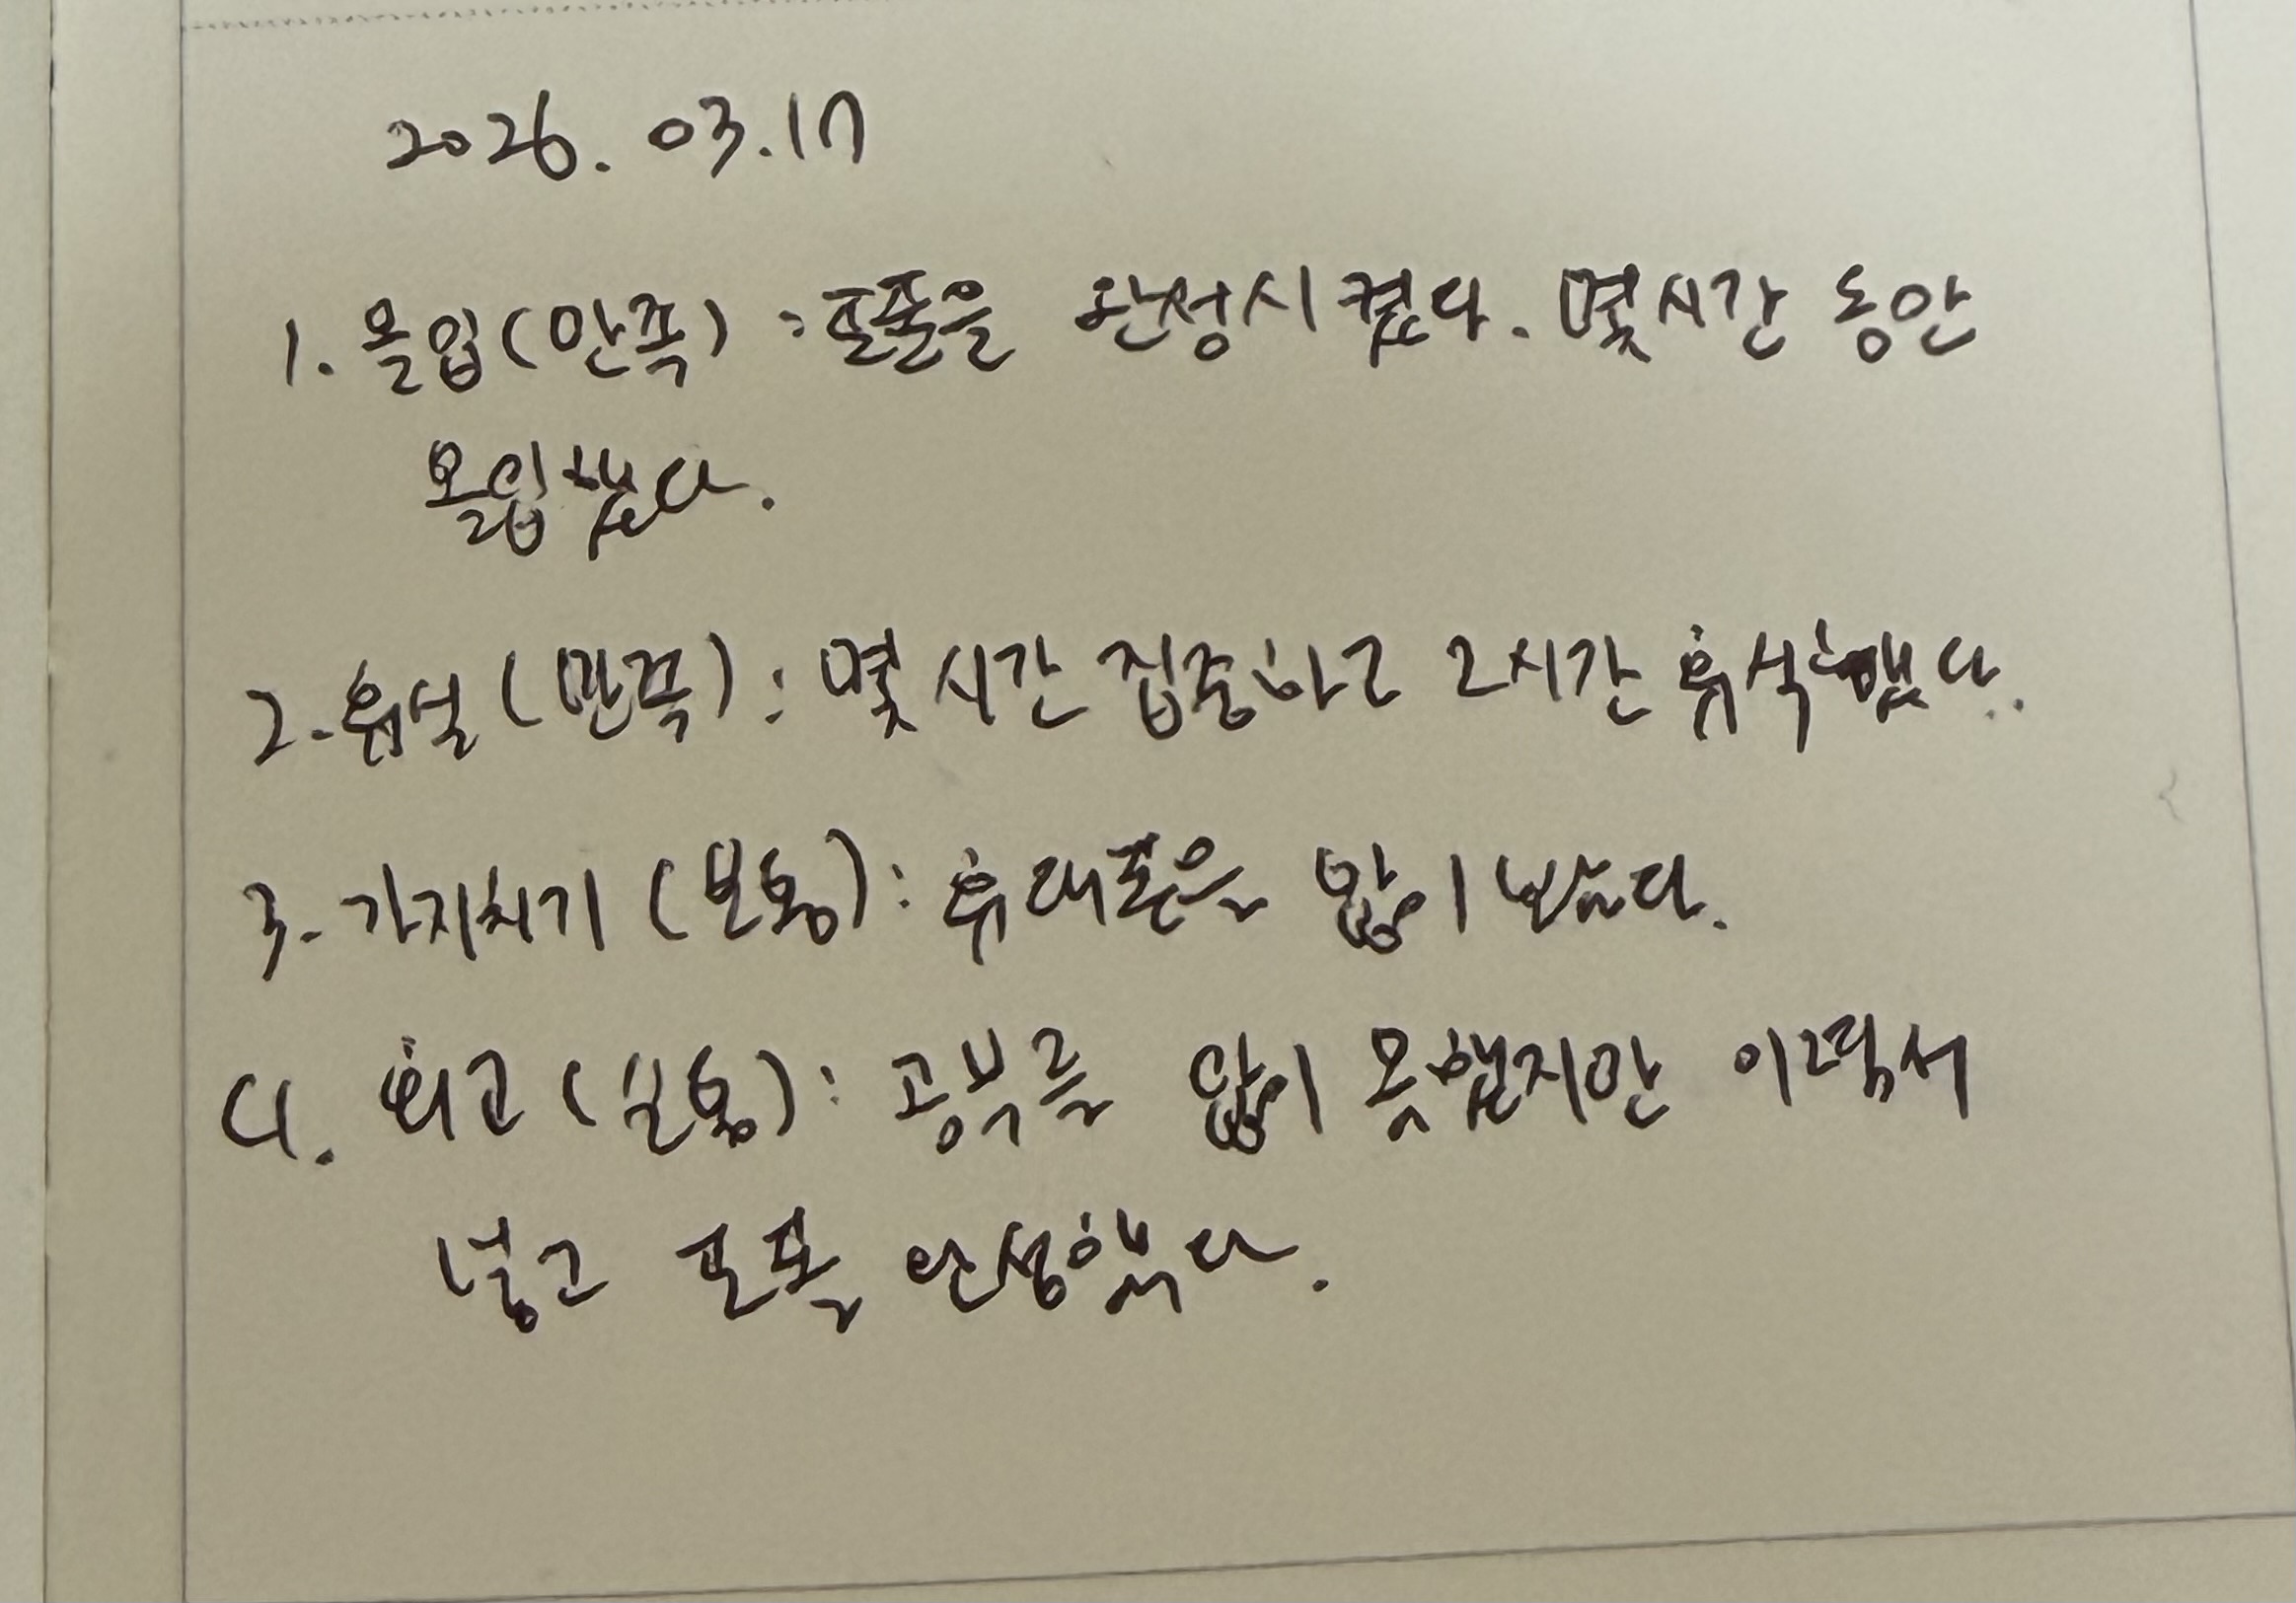 2026. 03. 17
1. 몰입(만족) : 포폴을 완성시켰다. 몇시간 동안
몰입했다.
2. 휴식(만족) : 몇 시간 집중하고 2시간 휴식했다.
3. 가지치기 (보통) : 휴대폰을 많이 봤다.
4. 회고 (보통) : 공부를 많이 못했지만 이력서
넣고 포폴 완성했다.